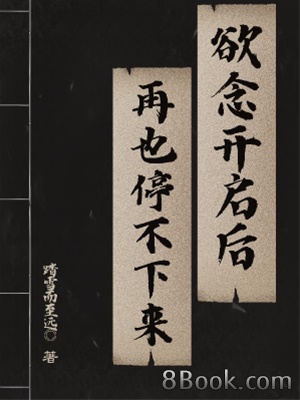 欲念开启后
再也停不下来
踏雪而至远◎ 著
8Book.com